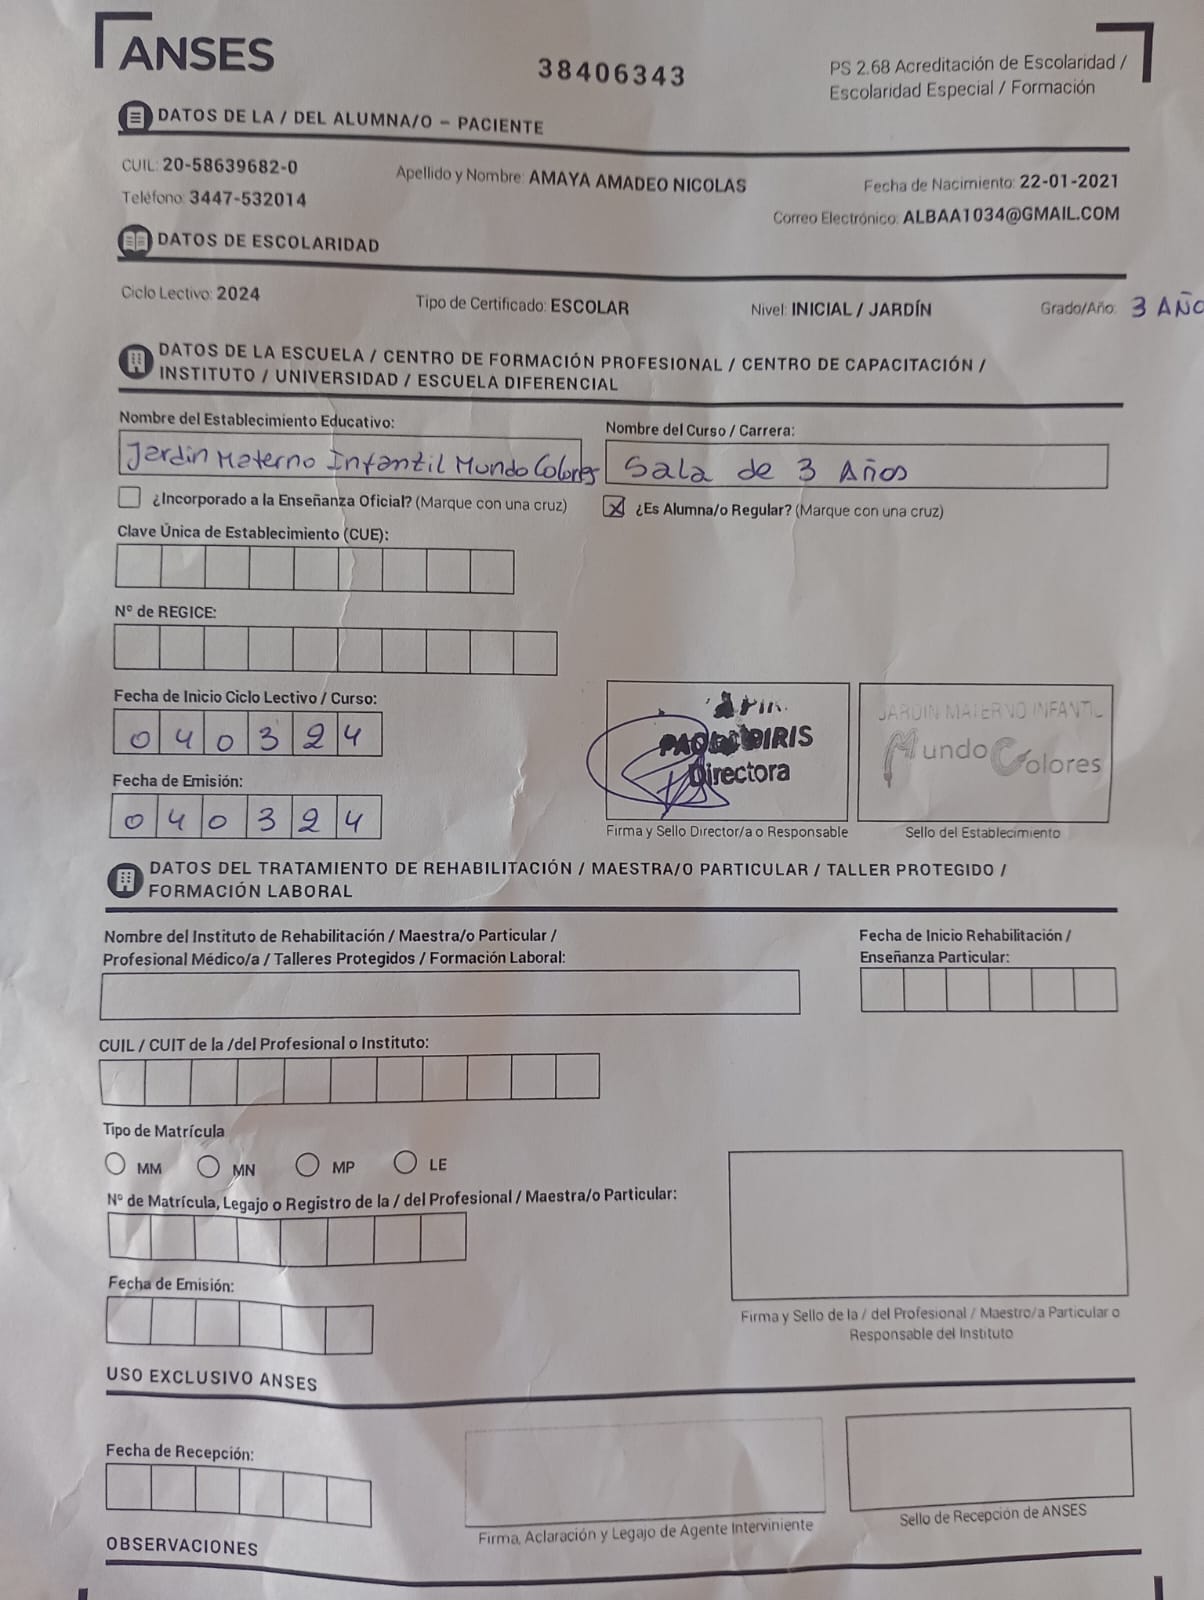 ANSES
38406343
PS 2.68 Acreditación de Escolaridad /
Escolaridad Especial / Formación
DATOS DE LA / DEL ALUMNA/O – PACIENTE
CUIL: 20-58639682-0
Apellido y Nombre: AMAYA AMADEO NICOLAS
Fecha de Nacimiento: 22-01-2021
Teléfono: 3447-532014
Correo Electrónico: ALBAA1034@GMAIL.COM
DATOS DE ESCOLARIDAD
Ciclo Lectivo: 2024
Tipo de Certificado: ESCOLAR
Nivel: INICIAL / JARDÍN
Grado/Año: 3 AÑO
DATOS DE LA ESCUELA / CENTRO DE FORMACIÓN PROFESIONAL / CENTRO DE CAPACITACIÓN /
INSTITUTO / UNIVERSIDAD / ESCUELA DIFERENCIAL
Nombre del Establecimiento Educativo:
Nombre del Curso / Carrera:
Jardin Materno Infantil Mundo Colores
Sala de 3 Años
¿Incorporado a la Enseñanza Oficial? (Marque con una cruz)
X ¿Es Alumna/o Regular? (Marque con una cruz)
Clave Única de Establecimiento (CUE):
Nº de REGICE:
Fecha de Inicio Ciclo Lectivo / Curso:
040324
Fecha de Emisión:
040324
PIRIS
Directora
Firma y Sello Director/a o Responsable
JARDIN MATERNO INFANTIL
Mundo Colores
Sello del Establecimiento
DATOS DEL TRATAMIENTO DE REHABILITACIÓN / MAESTRA/O PARTICULAR / TALLER PROTEGIDO /
FORMACIÓN LABORAL
Nombre del Instituto de Rehabilitación / Maestra/o Particular /
Profesional Médico/a / Talleres Protegidos / Formación Laboral:
Fecha de Inicio Rehabilitación /
Enseñanza Particular:
CUIL / CUIT de la /del Profesional o Instituto:
Tipo de Matrícula
MM MN MP LE
Nº de Matrícula, Legajo o Registro de la / del Profesional / Maestra/o Particular:
Fecha de Emisión:
Firma y Sello de la / del Profesional / Maestro/a Particular o
Responsable del Instituto
USO EXCLUSIVO ANSES
Fecha de Recepción:
Firma, Aclaración y Legajo de Agente Interviniente
Sello de Recepción de ANSES
OBSERVACIONES